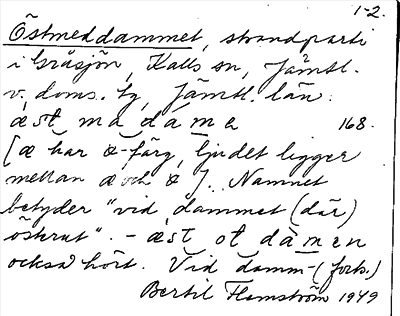 1-2.
Östmeddammet, strandparti
i Gråsjön, Kalls sn, Jämtl.
v. doms. tg, Jämtl. län:
æst mä dä m e 168.
[æ har ø-färg, ljudet ligger
mellan æ och ø]. Namnet
betyder "vid dammet (där)
österut". - æst ot dä m e n
också hört. Vid damm- (forts.)
Bertil Flemström 1949